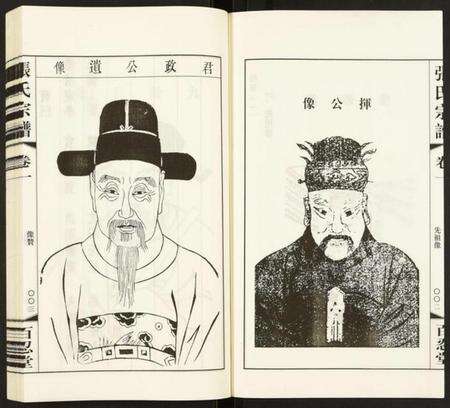 張氏宗譜
卷一
先祖像
〇〇二
百忍堂
揮公像
君政公遺像
張氏宗譜
卷一
像贊
〇〇三
百忍堂